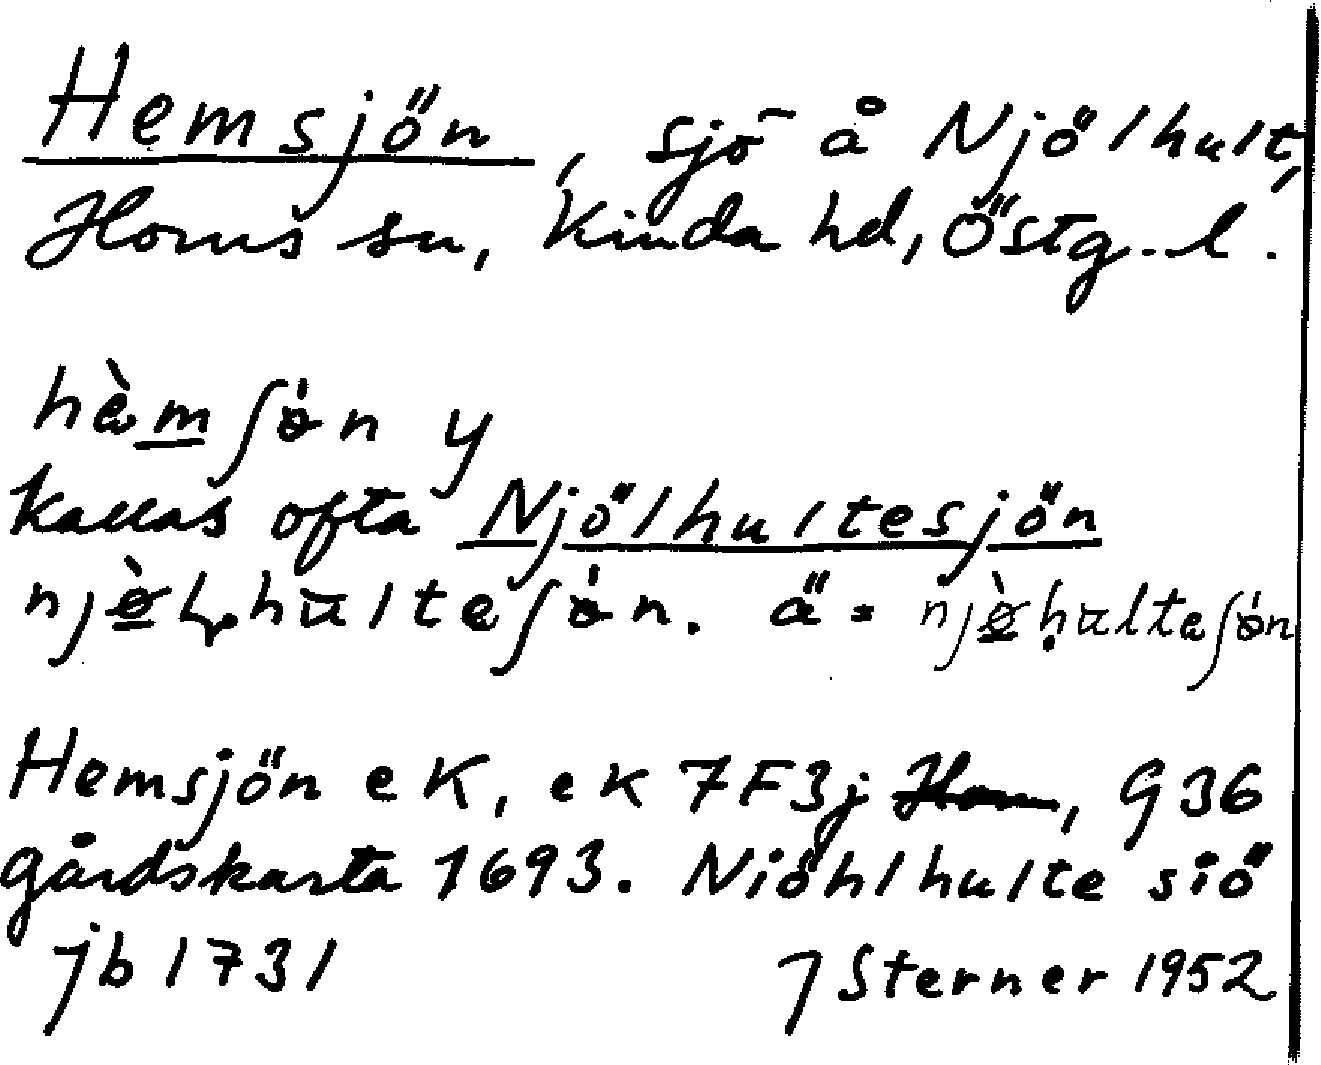 Hemsjön, sjö å Njölhult,
Horns sn, Kinda hd, Östg. l.
hèmʃɵ́n y
kallas ofta Njölhultesjön
njɵ̀ɭhulteʃɵ́n. ä = njɵ̀ḥulteʃɵ́n
Hemsjön eK, ek 7F3j, G 36
gårdskarta 1693. Niöhlhulte siö
jb 1731 J Sterner 1952